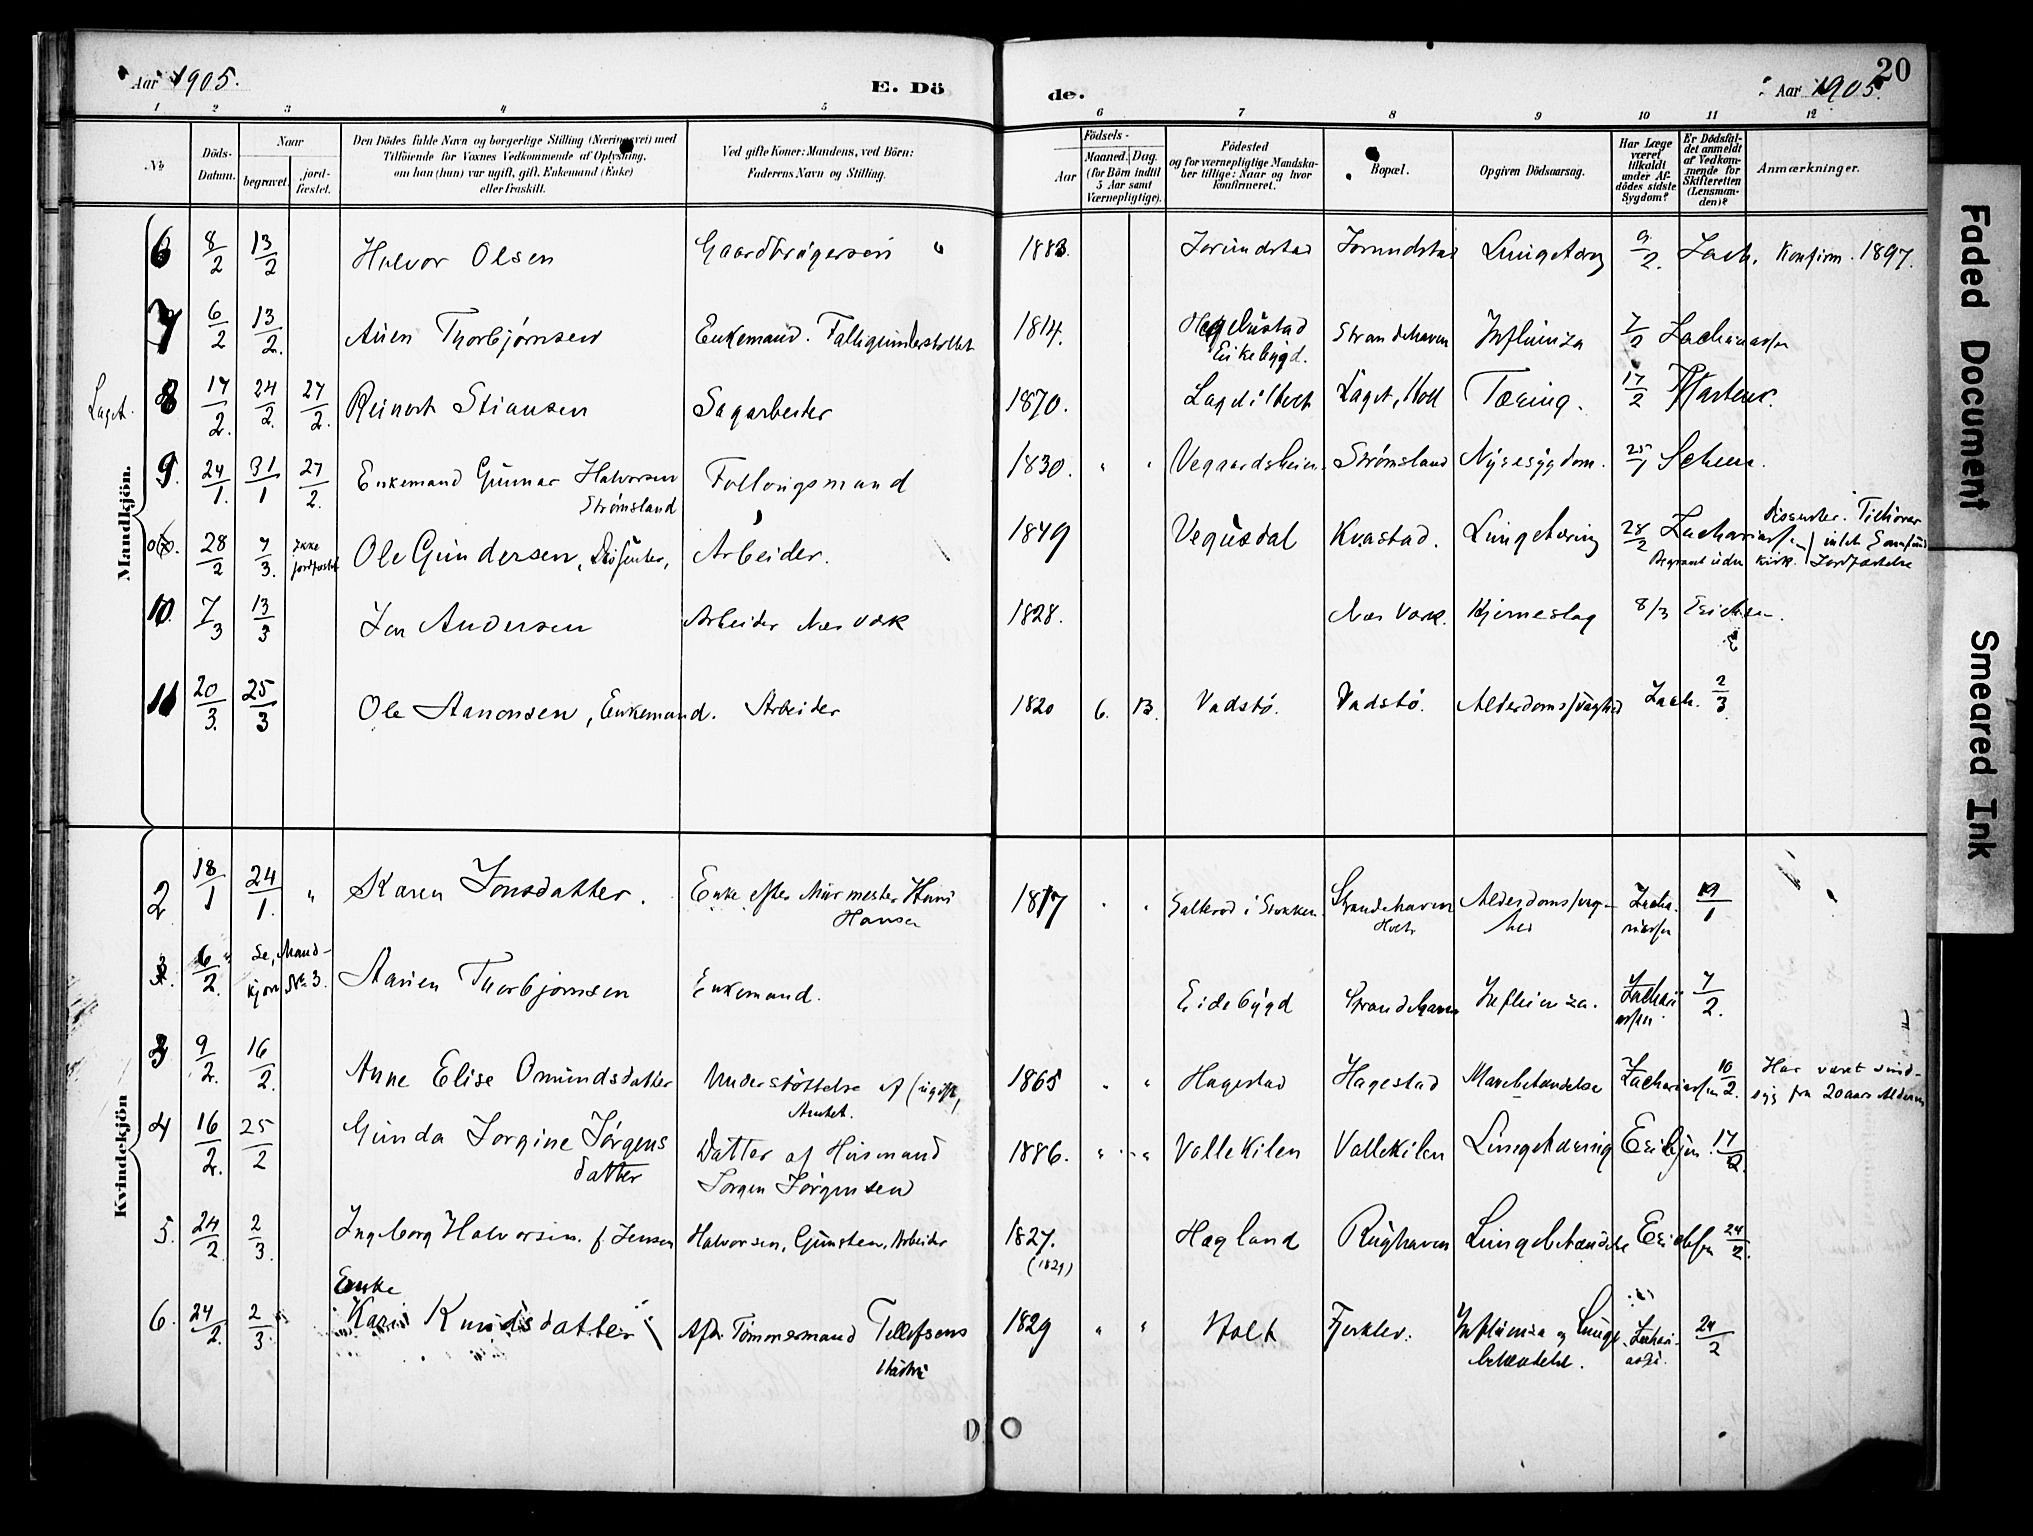 Aar 1905.
E. Dö
de.
Aar 1905.
20
1 2 3 4 5 6 7 8 9 10 11 12
No.
Döds-
Datum.
Naar
begravet.
jord-
fæstet.
Den Dödes fulde Navn og borgerlige Stilling (Næringsvei) med
Tilföiende for Voxnes Vedkommende af Oplysning,
om han (hun) var ugift, gift, Enkemand (Enke)
eller fraskilt.
Ved gifte Koner: Mandens, ved Börn:
Faderens Navn og Stilling.
Födsels-
Aar
Maaned. Dag.
(for Börn indtil
5 Aar samt
Værnepligtige).
Födested
og for værnepligtige Mandska-
ber tillige: Naar og hvor
konfirmeret.
Bopæl.
Opgiven Dödsaarsag.
Har Læge
været
tilkaldt
under Af-
dödes sidste
Sygdom?
Er Dödsfal-
det anmeldt
af Vedkom-
mende for
Skifteretten
(Lensman-
den)?
Anmærkninger.
Mandkjön.
6 8/2 13/2 Halvor Olsen Gaardbrugersøn " 1883. Jorundstad Jorundstad Lungetæring 9/2. Zach. Konfirm. 1897.
7 6/2 13/2. Thorbjørnsen Enkemand. 1814. Strandehaven Influinza 7/2
Eikebygd.
Laget. 8 17/2. 24/2. 27/2. Reinert Stiansen Sagarbeider 1870. Laget, Holt Tæring. 17/2
9. 24/1. 31/1 27/2. Enkemand Gunnar Halvorsen 1830. " " Vegaardsheien. Strømsland Nyresygdom. 25/1
Strømsland
28/2 7/3. Ikke
jordfæstet Ole Gundersen, Dissenter, Arbeider. 1849 Vegusdal Kvastad. Lungetæring 28/2 Zachariassen
Dissenter. Tilhører
intet Samfund
Jordfæstelse
10. 7/3 13/3 Jon Andersen Arbeider Næs Værk 1828. Næs Værk. Hjerneslag 8/3
11 20/3. 25/3 Ole Aanonsen, Enkemand. Arbeider 1820 6. 13. Vadstø. Vadstø. Zach. 2/3
Kvindekjön
2 18/1 24/1. " Karen Jonsdatter. Enke efter Murmester Hans
Hansen 1817 " " Strandehaven
Holt 19/1
3. 6/2. Se, Mand-
kjøn No 3. Thorbjørnsen Enkemand. Eidebygd Strandehaven Influenza. 7/2.
3 9/2. 16/2. Anne Elise Omundsdatter Understøttelse af
Amtet. 1865 " " Hagestad Hagestad Zachariassen 10/2. Har været sind-
syg fra 20 aars Alderen
4 16/2. 25/2 Gunda Jorgine Jørgens
datter Datter af Husmand
Jørgen Jørgensen 1886. " " Vallekilen Vallekilen Lungetæring 17/2.
5. 24/2. 2/3. Ingeborg Halvorsen. f. Jensen Halvorsen, Gunsten, Arbeider 1827.
Hagland Lungebetændelse 24/2.
6. 24/2. 2/3 Enke
Kari Knudsdatter Tømmermand Tellefsen 1829 " " Holt Influenza og Lunge
betændelse. 24/2
D O
Faded Document
Smeared Ink